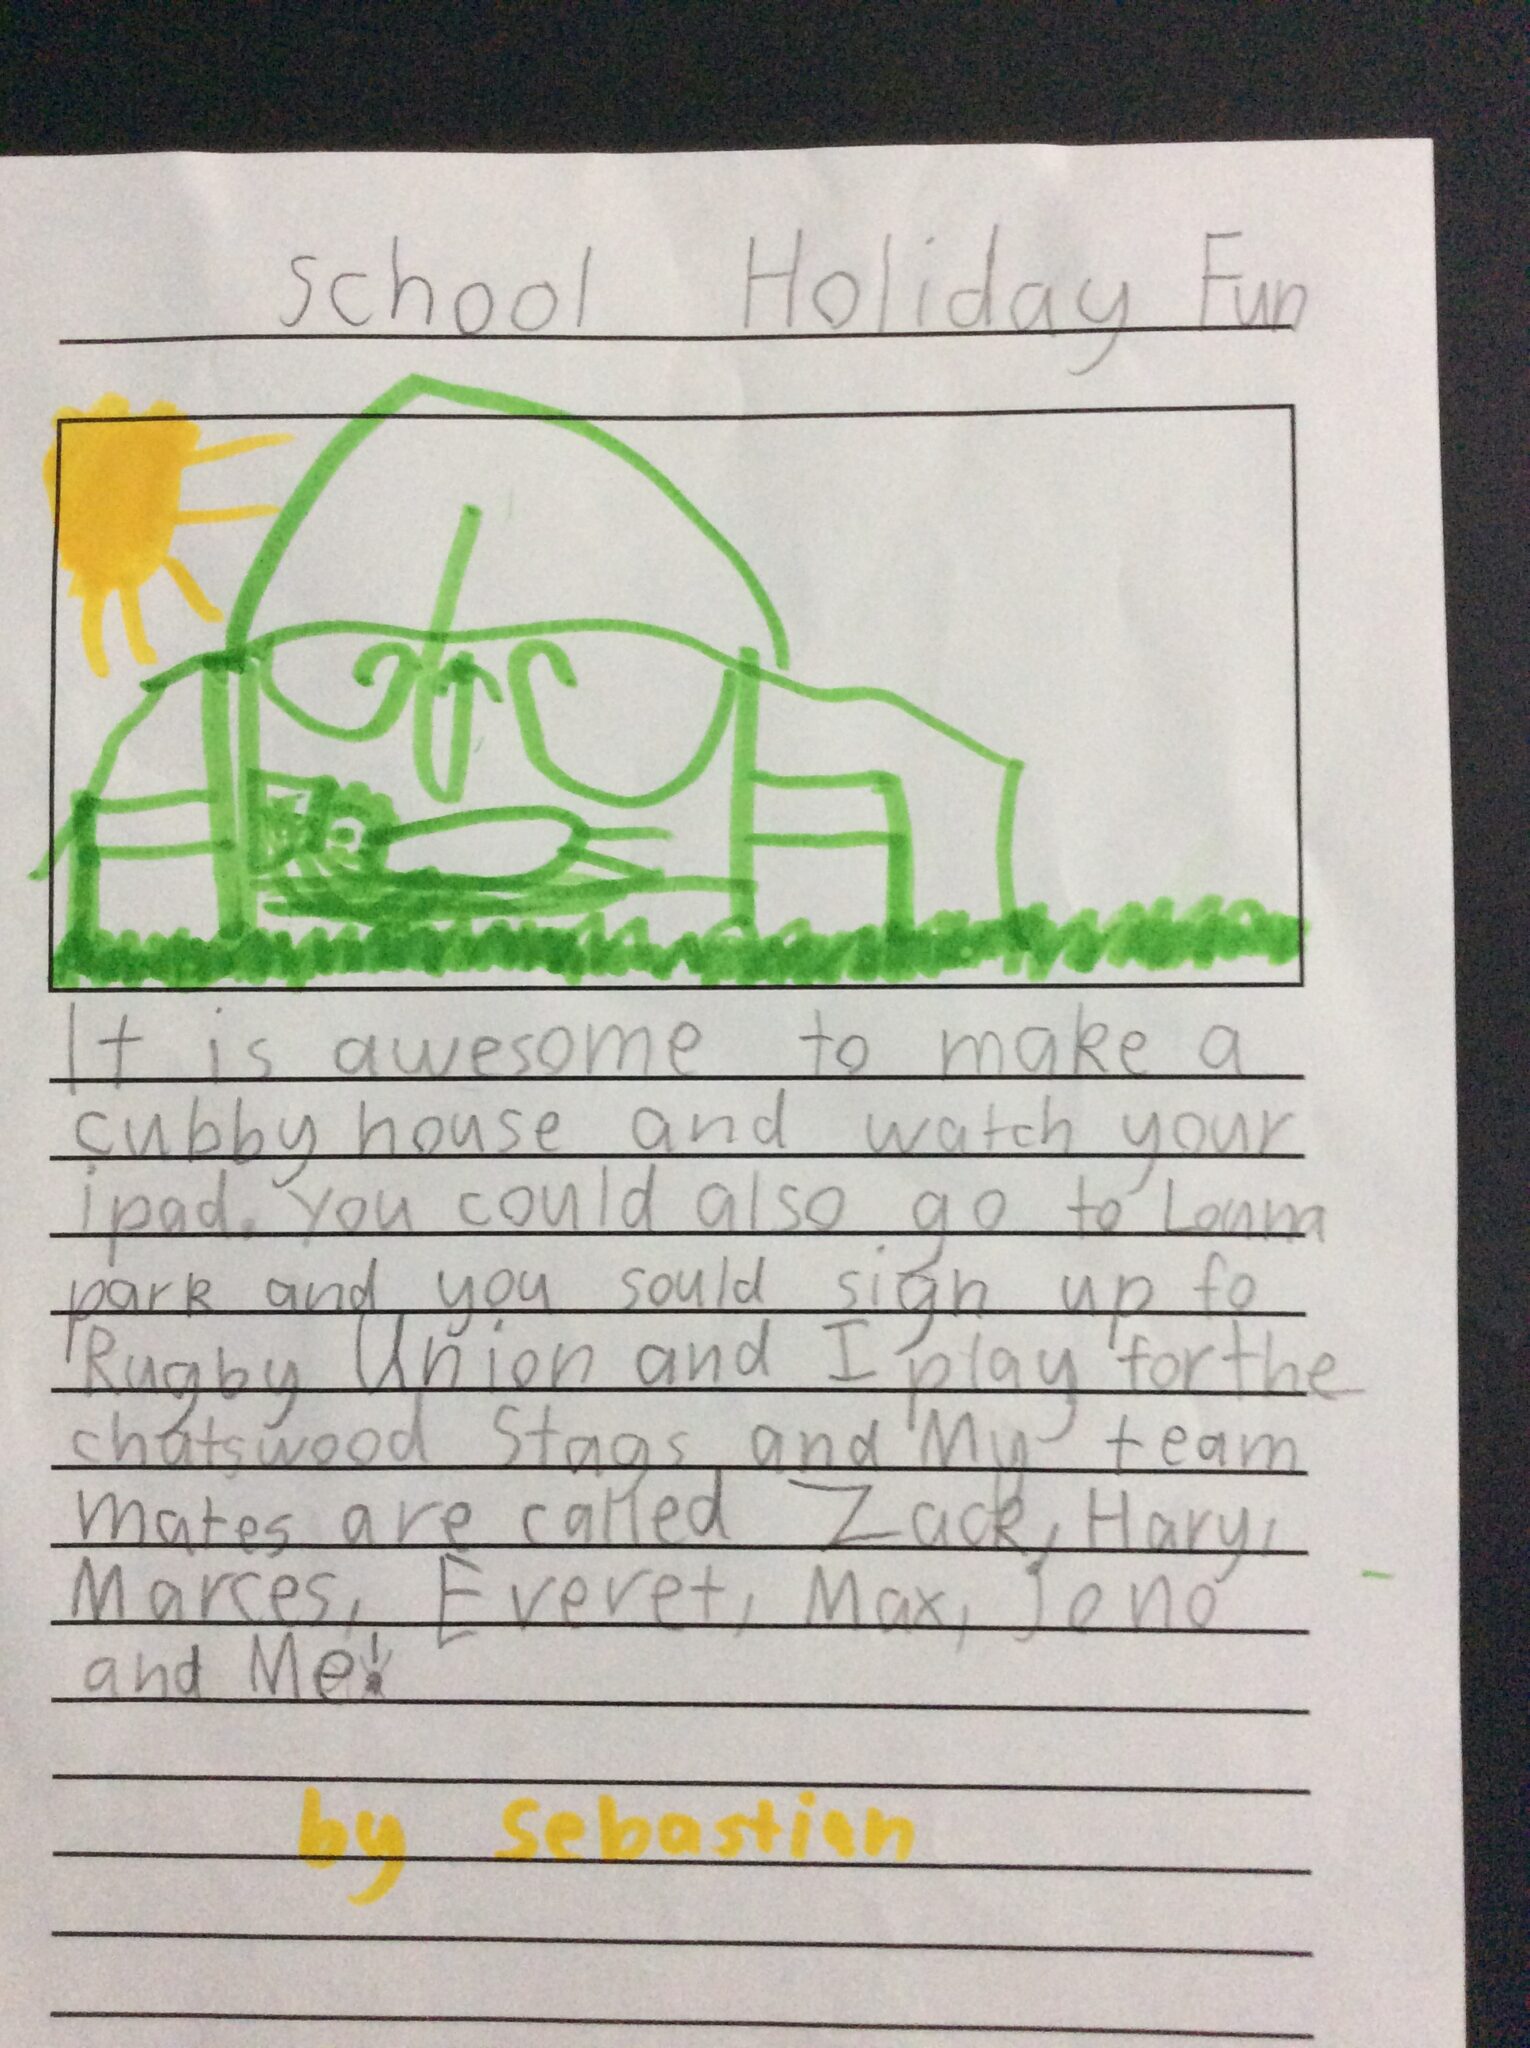 School Holiday Fun
It is awesome to make a
cubby house and watch your
ipad. You could also go to Lounna
park and you sould sign up fo
Rugby Union and I play for the
chatswood Stags and My team
mates are called Zack, Hary,
Marces, Everet, Max, Jono
and Me!
by Sebastian